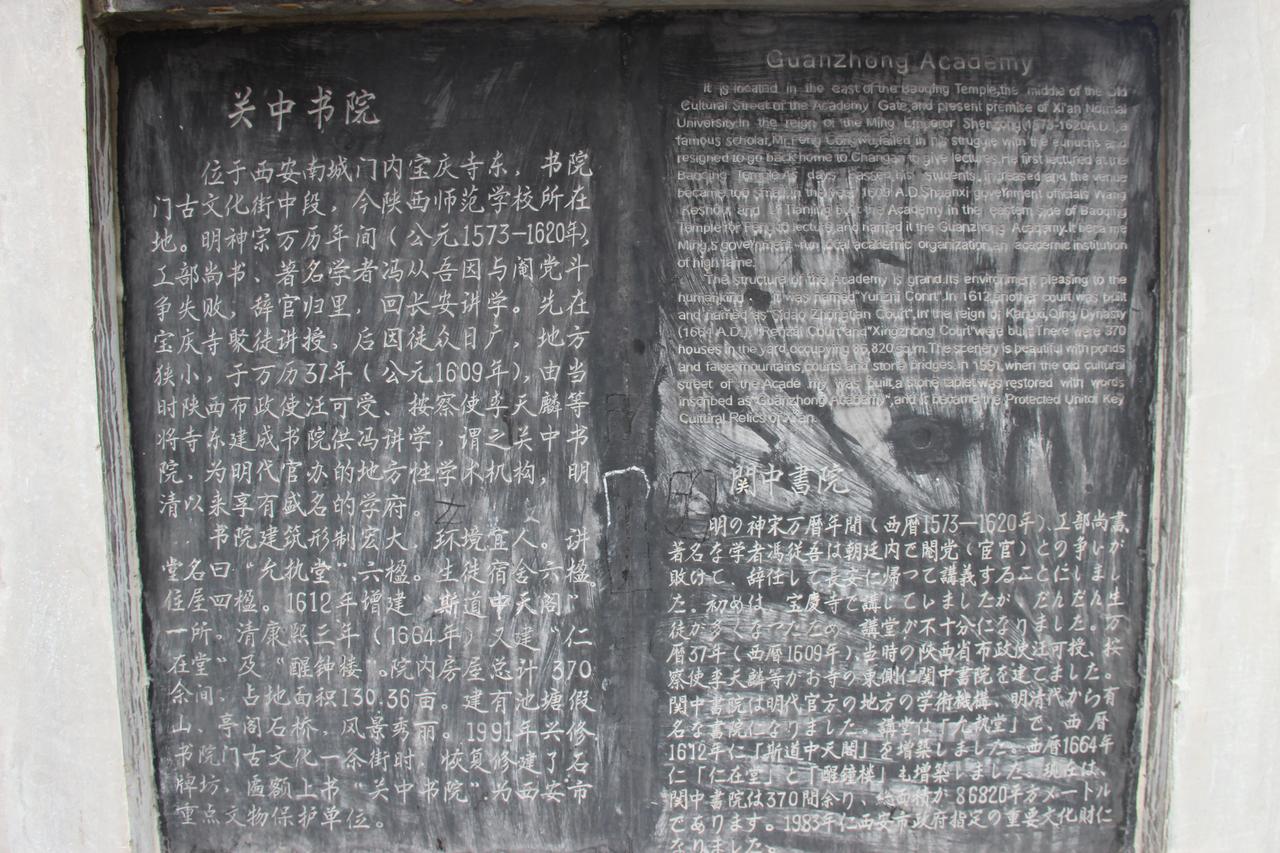 关中书院
位于西安南城门内宝庆寺东，书院
门古文化街中段，今陕西师范学校所在
地。明神宗万历年间（公元1573—1620年），
工部尚书、著名学者冯从吾因与阉党斗
争失败，辞官归里，回长安讲学。先在
宝庆寺聚徒讲授，后因徒众日广，地方
狭小，于万历37年（公元1609年），由当
时陕西布政使汪可受、按察使李天麟等
将寺东建成书院供冯讲学，谓之关中书
院，为明代官办的地方性学术机构，明
清以来享有盛名的学府。
书院建筑形制宏大，环境宜人。讲
堂名曰“允执堂”，六楹。生徒宿舍六楹，
住屋四楹。1612年增建“斯道中天阁”
一所。清康熙三年（1664年）又建“仁
在堂”及“醒钟楼”。院内房屋总计370
余间，占地面积130.36亩。建有池塘假
山、亭阁石桥，风景秀丽。1991年兴修
书院门古文化一条街时，恢复修建了石
牌坊，匾额上书“关中书院”为西安市
重点文物保护单位。
Guanzhong Academy
It is located in the east of the Baoqing Temple,the middle of the Old
Cultural Street of the Academy Gate,and present premise of Xi'an Normal
University.In the reign of the Ming Emperor Shenzong(1573-1620A.D.),a
famous scholar,Mr.Feng Congwu,failed in his struggle with the eunuchs and
resigned to go back home to Chang'an to give lectures.He first lectured at the
Baoqing Temple.As days passed,his students increased and the venue
became too small.In the year 1609 A.D.Shaanxi government officials Wang
Keshou and Li Tianlin built the Academy in the eastern side of Baoqing
Temple for Feng to lecture,and named it the Guanzhong Academy.It became
Ming,s government-run local academic organization,an academic institution
of high fame.
The structure of the Academy is grand.Its environment pleasing to the
humanking was named"Yunzhi Conrt".In 1612,another court was built
and named as "Sidao Zhongtian Court".In the reign of Kangxi,Qing Dynasty
(1664 A.D.),"Renzai Court"and"Xingzhong Court"were built.There were 370
houses in the yard occupying 86,820 sq.m.The scenery is beautiful with ponds
and false mountains,courts and stone bridges.In 1991,when the old cultural
street of the Acade my was built,a stone tablet was restored with words
inscribed as"Guanzhong Academy",and it became the Protected Unitof Key
Cultural Relics of Xi'an.
関中書院
明の神宋万暦年間（西暦1573—1620年）、工部尚書、
著名な学者馮従吾は朝廷内で閹党（宦官）との争いが
敗けて、辞任して長安に帰つて講義することにしまし
た。初めは、宝慶寺で講していましたが だんだん生
徒が多くなつたため 講堂が不十分になりました。万
暦37年（西暦1609年）、当時の陝西省布政使汪可授、按
察使李天麟等がお寺の東側に関中書院を建てました。
関中書院は明代官方の地方の学術機構、明清代から有
名な書院になりました。講堂は「允执堂」で、西暦
1612年に「斯道中天閣」を増築しました。西暦1664年
に「仁在堂」と「醒鐘楼」も増築しました。現在は、
関中書院は370間余り、総面積が86820平方メートル
であります。1983年に西安市政府指定の重要文化財に
なりました。